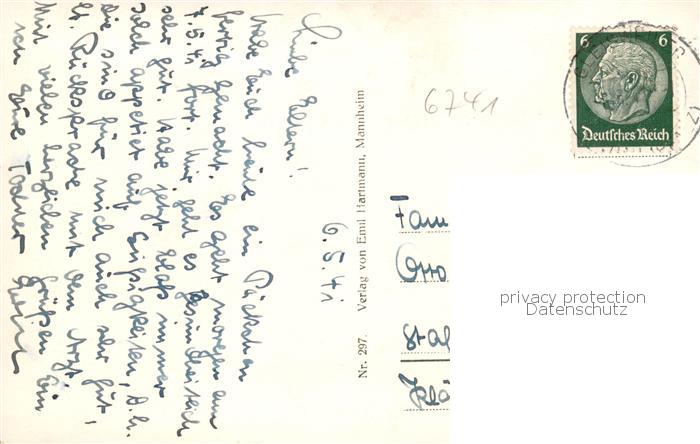 6.5.41
Liebe Eltern!
Habe Euch heute ein Päckchen
fertig gemacht. Es geht morgen am
7.5.41 fort. Mir geht es gesundheitlich
sehr gut. Habe jetzt bloß immer
solch appetiet auf Süßigkeiten, d.h.
die sind für mich auch sehr gut,
lt. Rücksprache mit dem Arzt.
Mit vielen herzlichen Grüßen bin
ich Eure Tochter
Nr. 297. Verlag von Emil Hartmann, Mannheim
6741
6 6
Deutsches Reich
Fam
Otto
Stal
Klö
privacy protection
Datenschutz